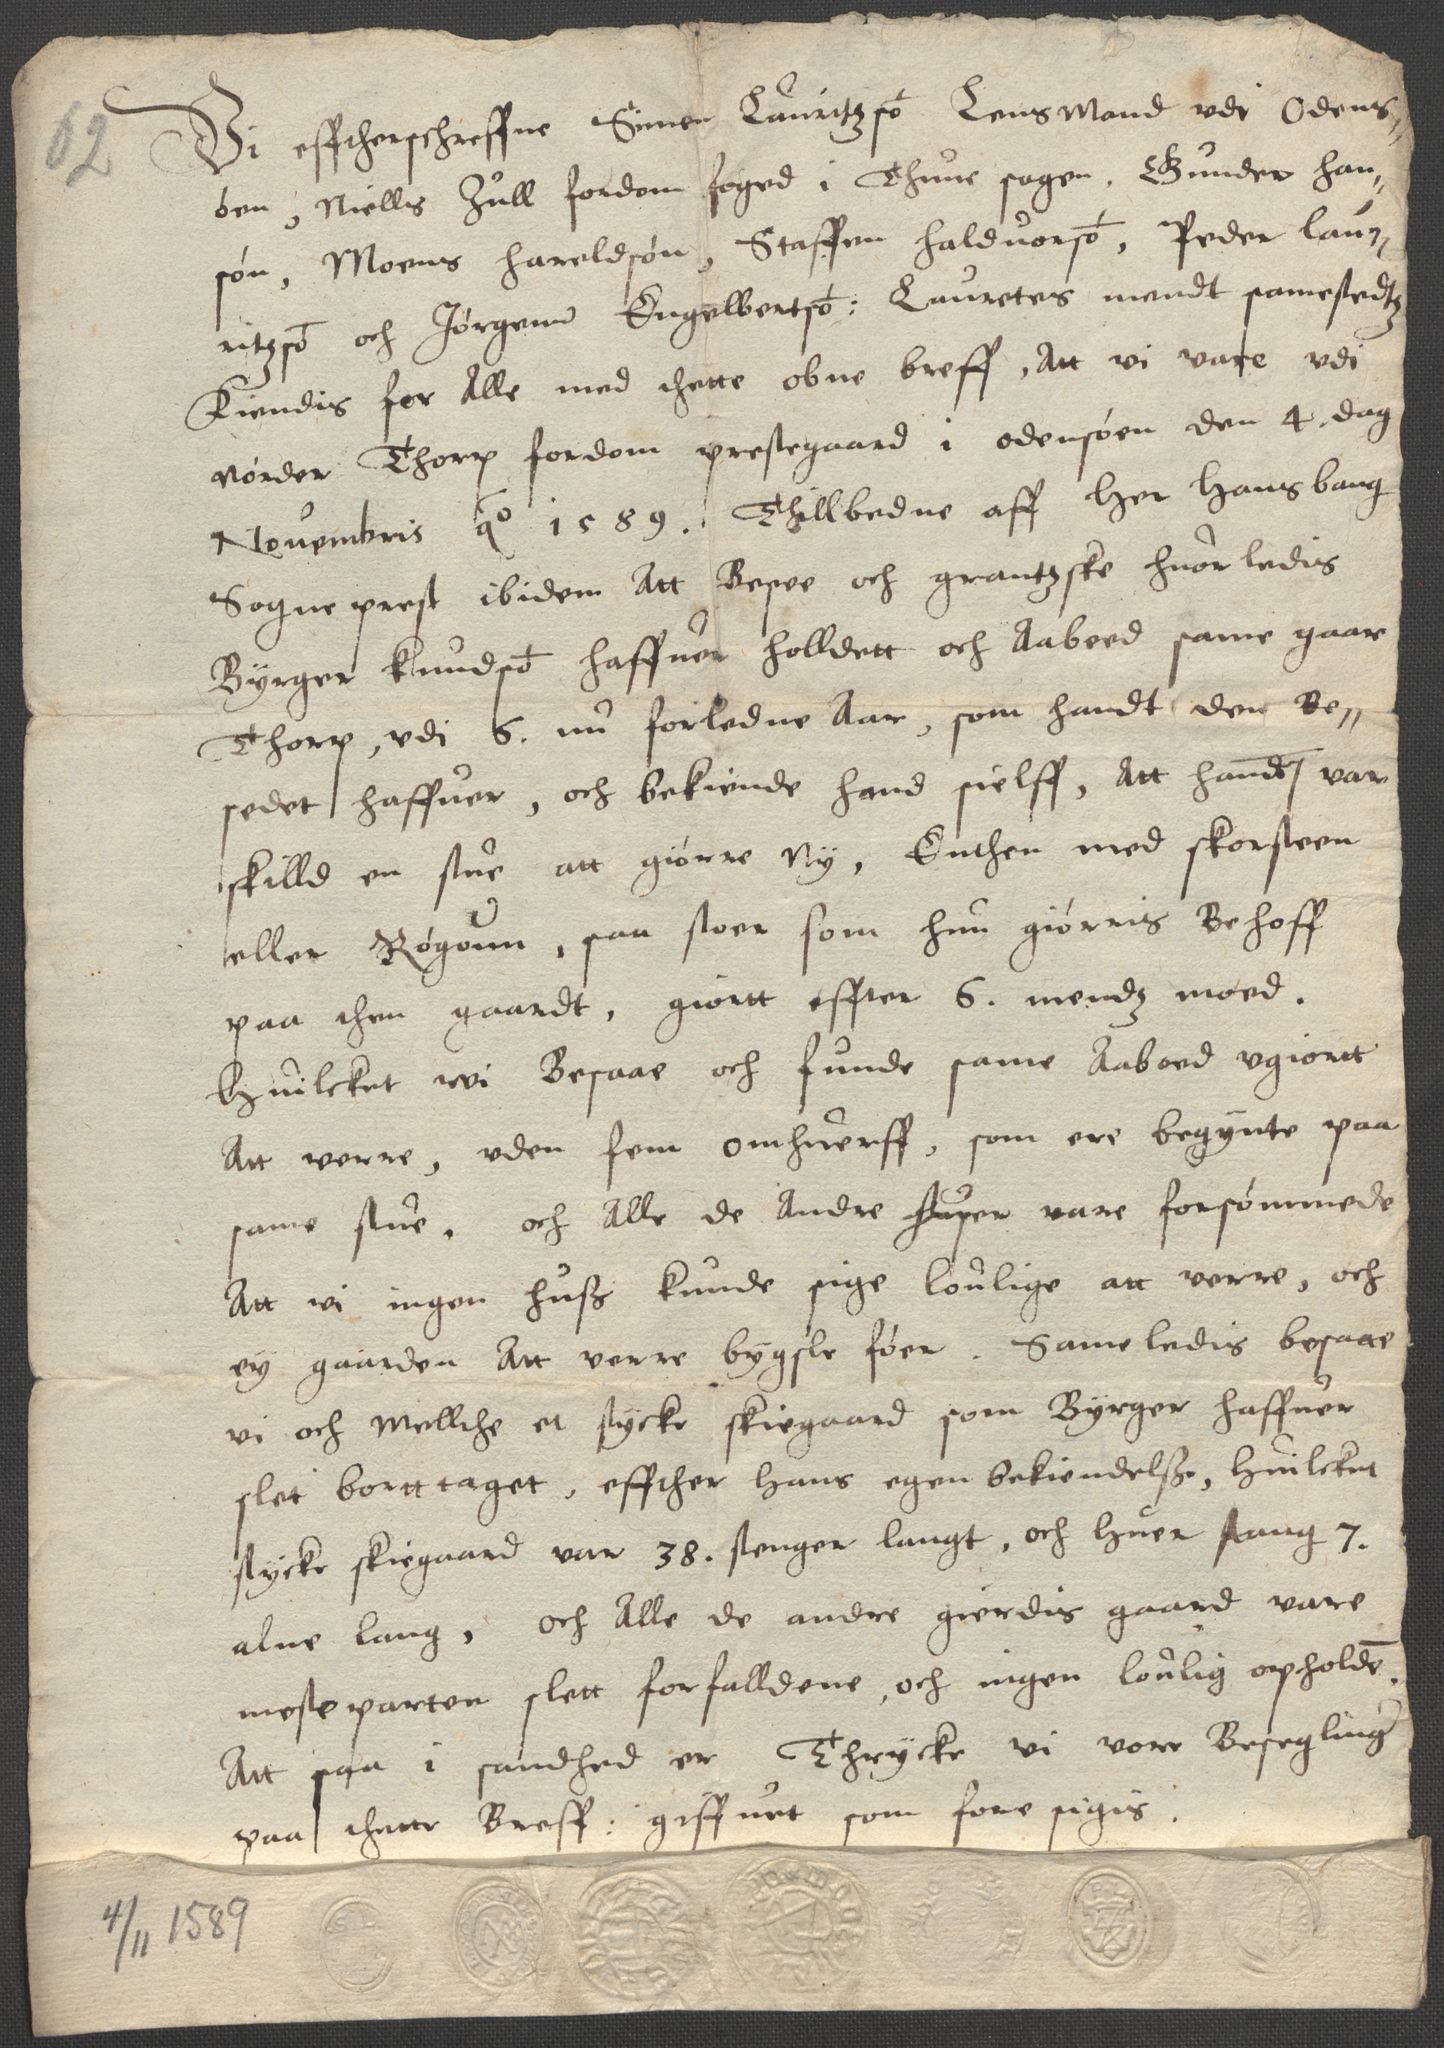 62
Vi effthersch​reffne Simen Lauritzsø Lensmand vdi Odens¬
øen, Niellis Jull fordom foged i Thune sogen, Gunder han¬
søn, Moens hareldsøn, Staffen halduorsø, Peder lau¬
ritzsø och Jørgenn Engelbertsø: Lauretes mendt samestedtz
Kiendis for Alle med thette obne breff, Att vi vare vdi
Nørder Thorp fordom prestegaard i odensøen den 4. dag
Nouembris ao 1589. Thillbedne aff Her Hans bang
Sogne prest ibidem Att Besee och grantzske huor ledis
Byrger knudsø haffuer holldett och Aaboed same gaar
Thorp, vdi 6. nu forledne Aar, som handt den Be¬
sedet haffuer, och bekiende hand sielff, Att hand var
skilld en stue att giørre Ny, Enthen med skorsteen
eller Røgoun, saa stoer som hun giørris Behoff
paa then gaardt, giortt effter 6. mendz moed.
Huilcket wi Besaae och funde same Aaboed vgiortt
Att verre, vden fem omhuerff, som ere begynte paa
same stue. och Alle de Andre huser vare forsømmede
Att vi ingen huss kunde sige loulige att verre, och
ey gaarden Att verre bygsle føer. Sameledis besaae
vi och Mellthe et stycke skiegaard som Byrger haffuer
slet bortt taget, effther hans egen bekiendelse, huilcket
stycke skiegaard var 38. stenger langt, och huer stang 7.
alne lang, och Alle de andre gierdis gaard vare
meste parten slett forfalldene, och ingen loulig opholde.
Att saa i sandhed er Thrycke vi vore Besegling
paa thette Breff: giffuet som fore sigis.
4/11 1589